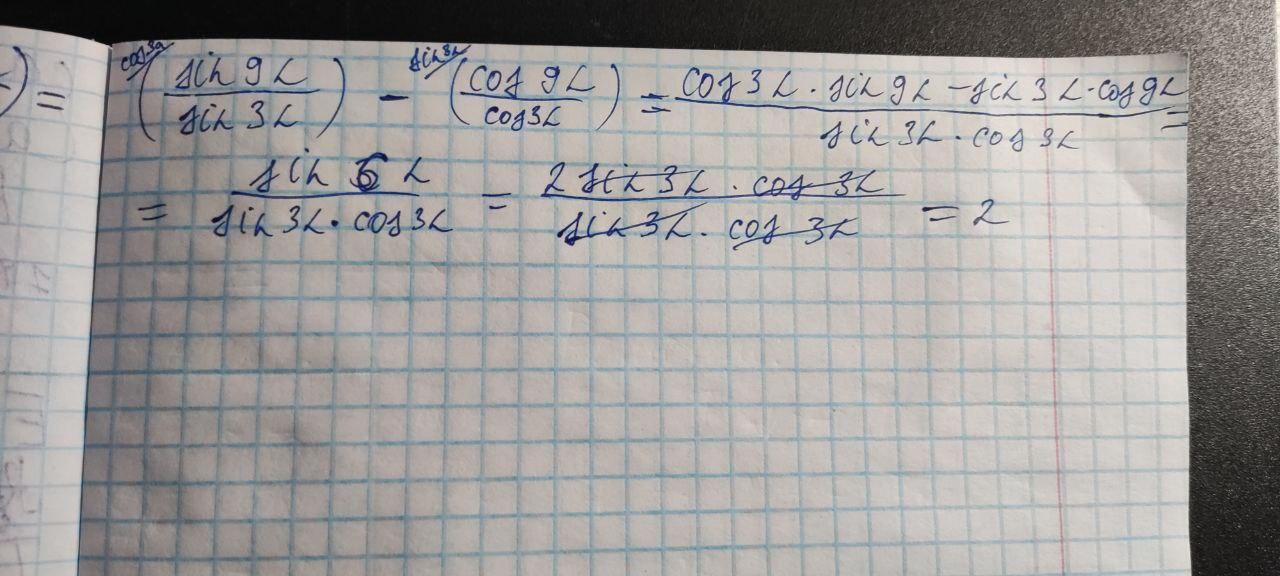 ) = cos3α (sin 9α / sin 3α) - sin3α (cos 9α / cos3α) = cos 3α · sin 9α - sin 3α · cos 9α / sin 3α · cos 3α =
= sin 6 α / sin 3α · cos 3α = 2 sin 3α · cos 3α / sin 3α · cos 3α = 2